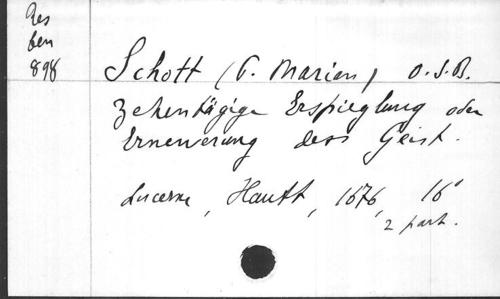 Res
ben
898
Schott (P. Marian) O.S.B.
Zehentägige Erspieglung oder
Ernewerung dess Geist.
Lucerne, Hautt, 1676, 16°
2 part.